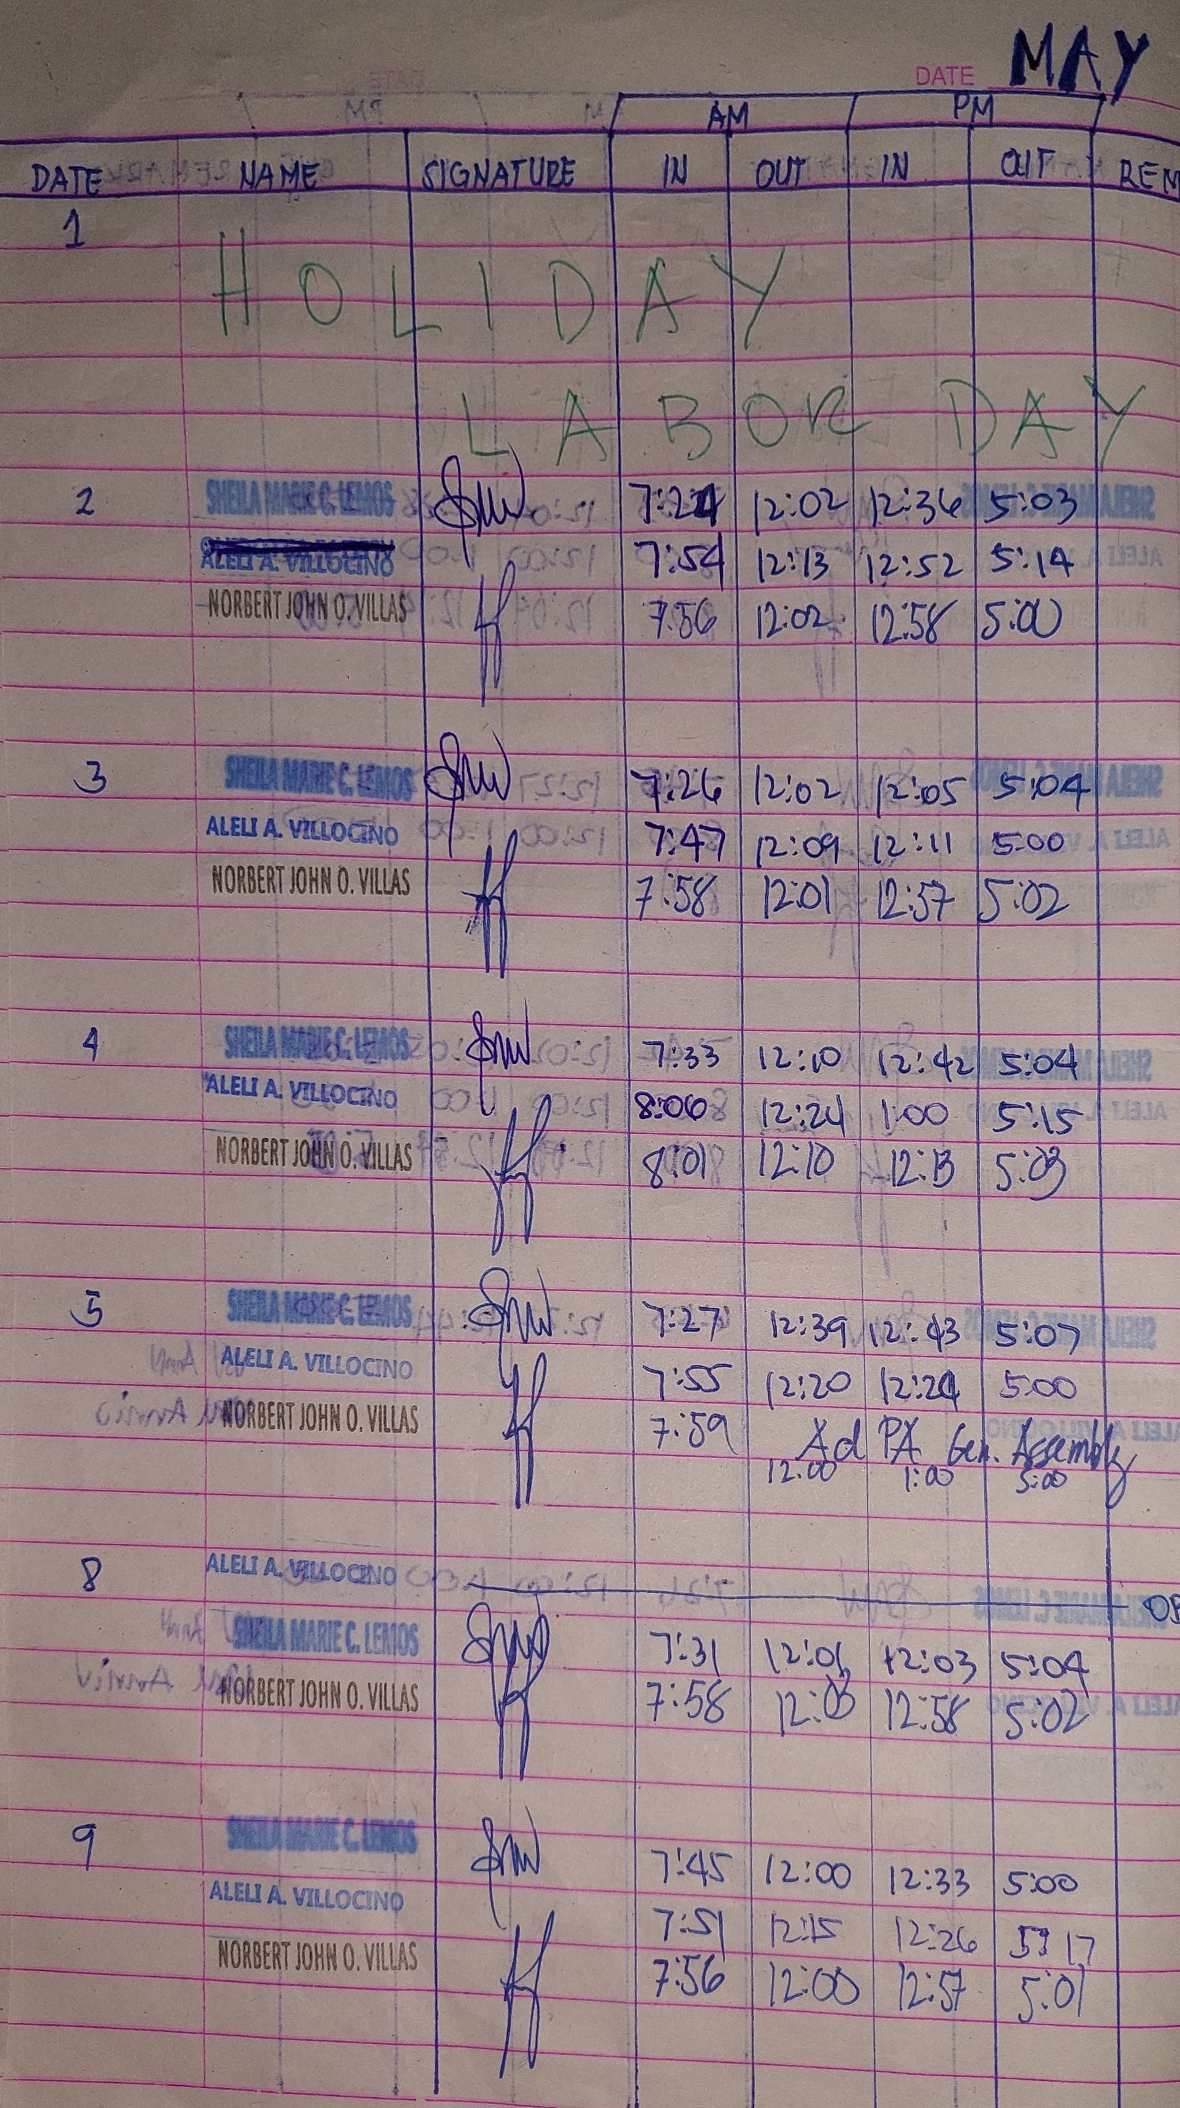 DATE MAY
AM PM
DATE NAME SIGNATURE IN OUT IN OUT REM
1
HOLIDAY
LABOR DAY
2 SHEILA MARIE C. LEMOS 7:24 12:02 12:36 5:03
ALELI A. VILLOCINO 7:54 12:13 12:52 5:14
NORBERT JOHN O. VILLAS 7:56 12:02 12:58 5:00
3 SHEILA MARIE C. LEMOS 7:26 12:02 12:05 5:04
ALELI A. VILLOCINO 7:47 12:09 12:11 5:00
NORBERT JOHN O. VILLAS 7:58 12:01 12:57 5:02
4 SHEILA MARIE C. LEMOS 7:33 12:10 12:42 5:04
ALELI A. VILLOCINO 8:06 12:24 1:00 5:15
NORBERT JOHN O. VILLAS 8:01 12:10 12:13 5:03
5 SHEILA MARIE C. LEMOS 7:27 12:39 12:43 5:07
ALELI A. VILLOCINO 7:55 12:20 12:24 5:00
NORBERT JOHN O. VILLAS 7:59 Ad PA Gen. Assembly
12:00 1:00 5:00
8 ALELI A. VILLOCINO
SHEILA MARIE C. LEMOS 7:31 12:01 12:03 5:04
NORBERT JOHN O. VILLAS 7:58 12:58 5:02
9 SHEILA MARIE C. LEMOS 7:45 12:00 12:33 5:00
ALELI A. VILLOCINO 7:51 12:15 12:26 17
NORBERT JOHN O. VILLAS 7:56 12:00 12:57 5:01